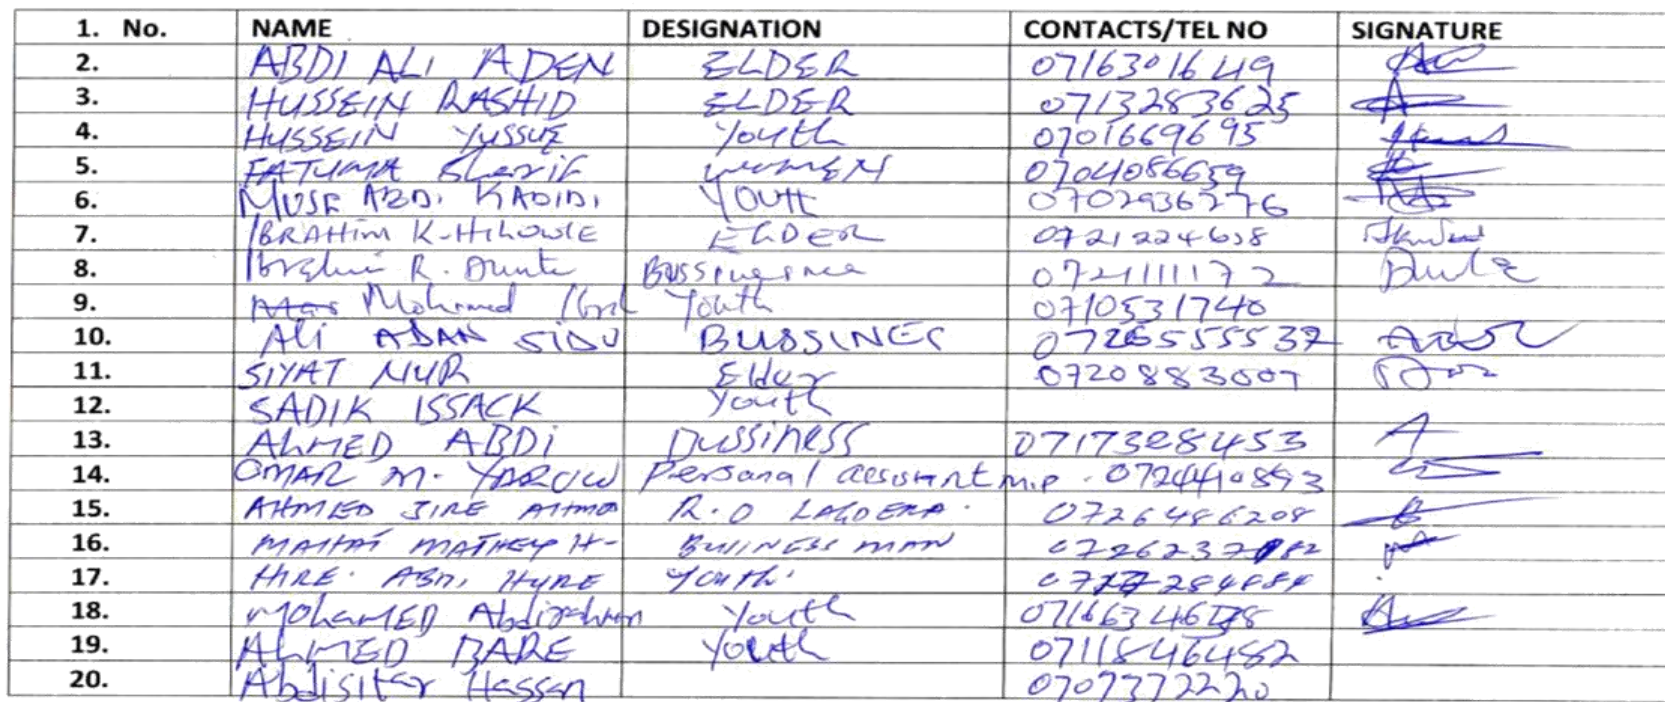 1. No. NAME DESIGNATION CONTACTS/TEL NO SIGNATURE
2. ABDI ALI ADEN ELDER 0716301649
3. HUSSEIN RASHID ELDER 0713283625
4. HUSSEIN YUSSUF Youth 0701669695
5. FATUMA Sherif WOMEN 0704086659
6. MUSE ABDI KADIDI YOUTH 0702936276
7. IBRAHIM K-HILOWLE ELDER 0721224638
8. Ibrahim R. 0721111172
9. Mohamed Youth 0710531740
10. Ali ADAN BUSSINES 0726555537
11. SIYAT NUR Elder 0720883007
12. SADIK ISSACK Youth
13. AHMED ABDI BUSSINESS 0717328453
14. OMAR M. YAROW Personal assistant M.P. 0724410893
15. AHMED JIRE R.O LAGDERA. 0726486208
16. BUSINESS MAN
17. HIRE. ABDI HYRE Youth.
18. MohaMED Abdirahman Youth
19. AHMED BARE Youth 0711846482
20. Abdisitar Hassan 0707372220